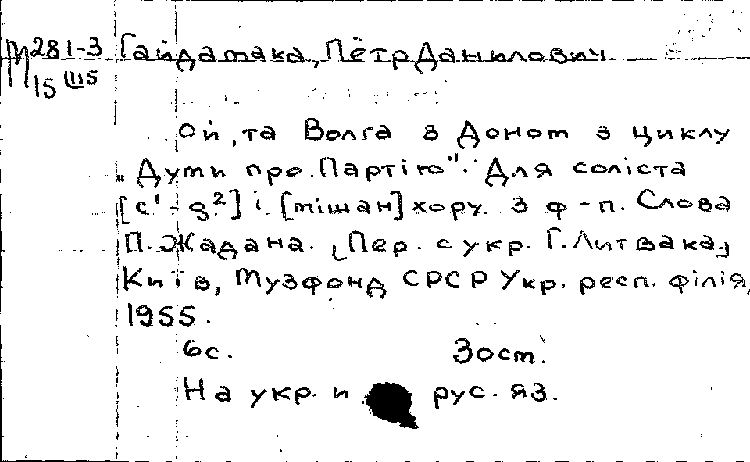 М 281-3 Гайдамака, Пётр Данилович
15 Ш5
Ой, та Волга з Доном з циклу
"Думи про Партію". Для соліста
[c¹-g²] і [мішан] хору. З ф-п. Слова
П. Жадана. [Пер. с укр. Г. Литвака]
Київ, Музфонд СРСР Укр. респ. філія,
1955.
6с. 3ост.
На укр. и рус. яз.